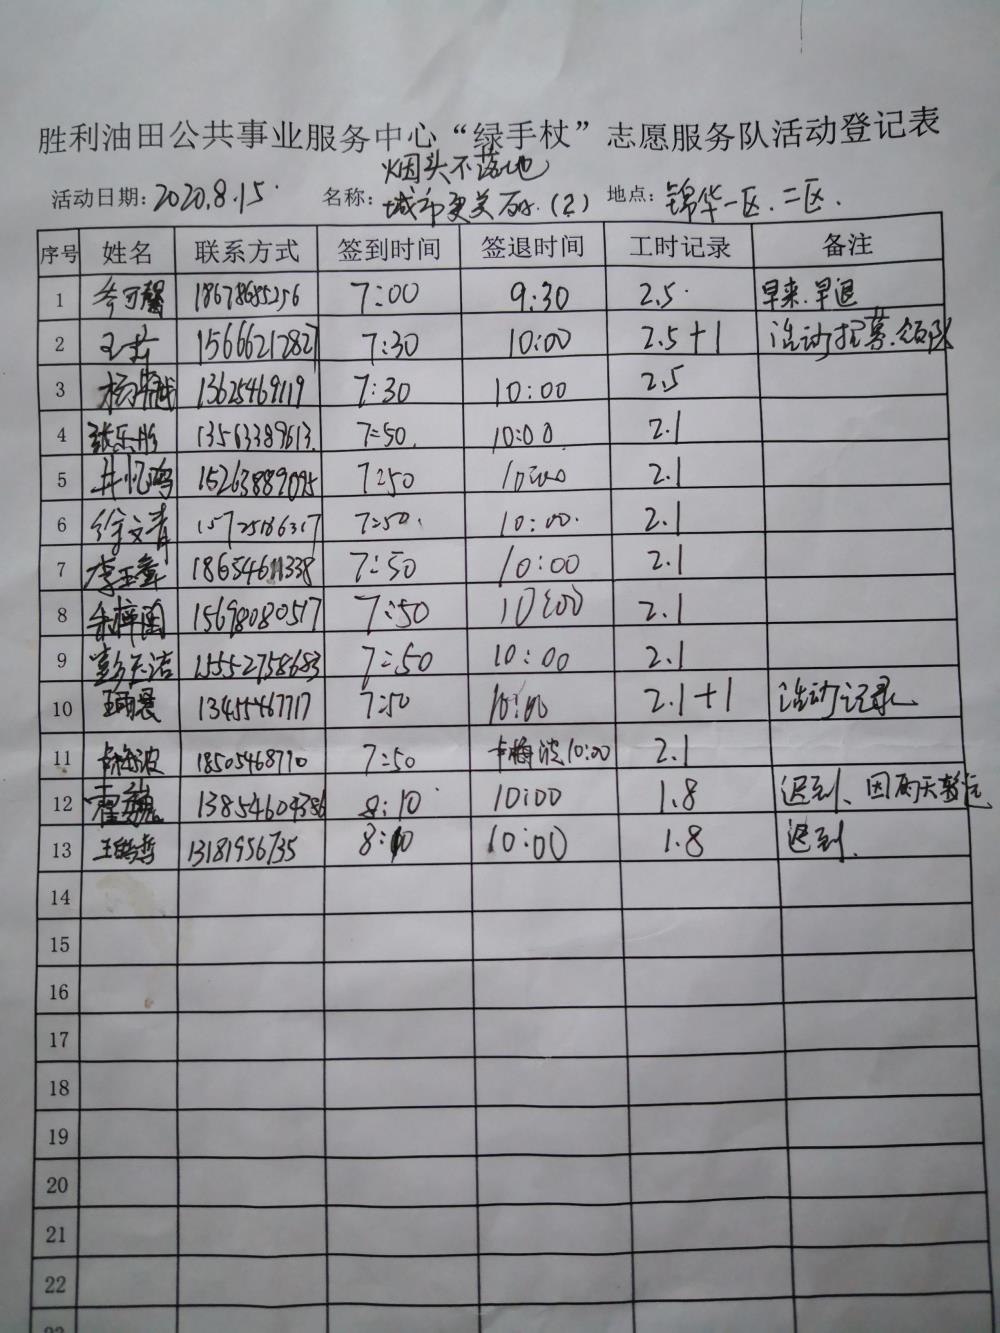 胜利油田公共事业服务中心“绿手杖”志愿服务队活动登记表
烟头不落地
活动日期：2020.8.15 名称：城市更美丽.(2) 地点：锦华一区.二区.
序号 姓名 联系方式 签到时间 签退时间 工时记录 备注
1 18678685256 7:00 9:30 2.5 早来.早退
2 15666212827 7:30 10:00 2.5+1 活动招募.领队
3 13625469119 7:30 10:00 2.5
4 张乐彤 13563389613 7:50 10:00 2.1
5 15263889095 7:50 10:00 2.1
6 徐文青 15725186317 7:50 10:00 2.1
7 7:50 10:00 2.1
8 15698080517 7:50 10:00 2.1
9 彭玉洁 15552758683 7:50 10:00 2.1
10 13455467717 7:50 10:00 2.1+1 活动记录
11 卡梅波 18505468770 7:50 卡梅波10:00 2.1
12 13854604386 8:10 10:00 1.8 迟到、因雨天
13 13181956735 8:10 10:00 1.8 迟到.
14
15
16
17
18
19
20
21
22
23